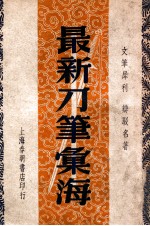 文筆犀利 辯駁名著
最新刀筆彙海
上海春明書店印行